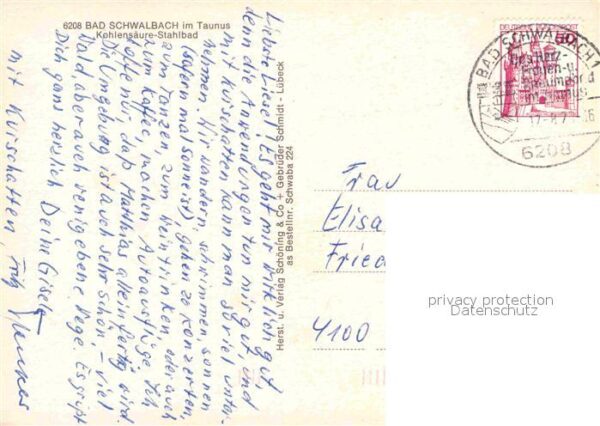 6208 BAD SCHWALBACH im Taunus
Kohlensäure-Stahlbad
Liebste Liesel! Es geht mir wirklich gut
denn die Anwendungen tun mir gut, und
mit Kurschatten kann man so viel unter-
nehmen. Wir wandern, schwimmen, sonnen
(wenn mal Sonne ist), gehen zu Konzerten,
zum Tanzen, zum Wein trinken oder auch
zum Kaffee, machen Autoausflüge. Ich
hoffe nur, daß Matthias allein fertig wird.
Die Umgebung ist auch sehr schön - viel
Wald aber auch wenig ebene Wege. Es grüßt
Dich ganz herzlich Deine Gisela
mit Kurschatten,
Herst. u. Verlag Schöning & Co + Gebrüder Schmidt - Lübeck
as Bestellnr. Schwaba 224
DEUTSCHE BUNDESPOST
50
BAD SCHWALBACH 1
Das Herz-
Frauen-u.
im Taunus
6208
Frau
Elisa
Fried
4100
privacy protection
Datenschutz